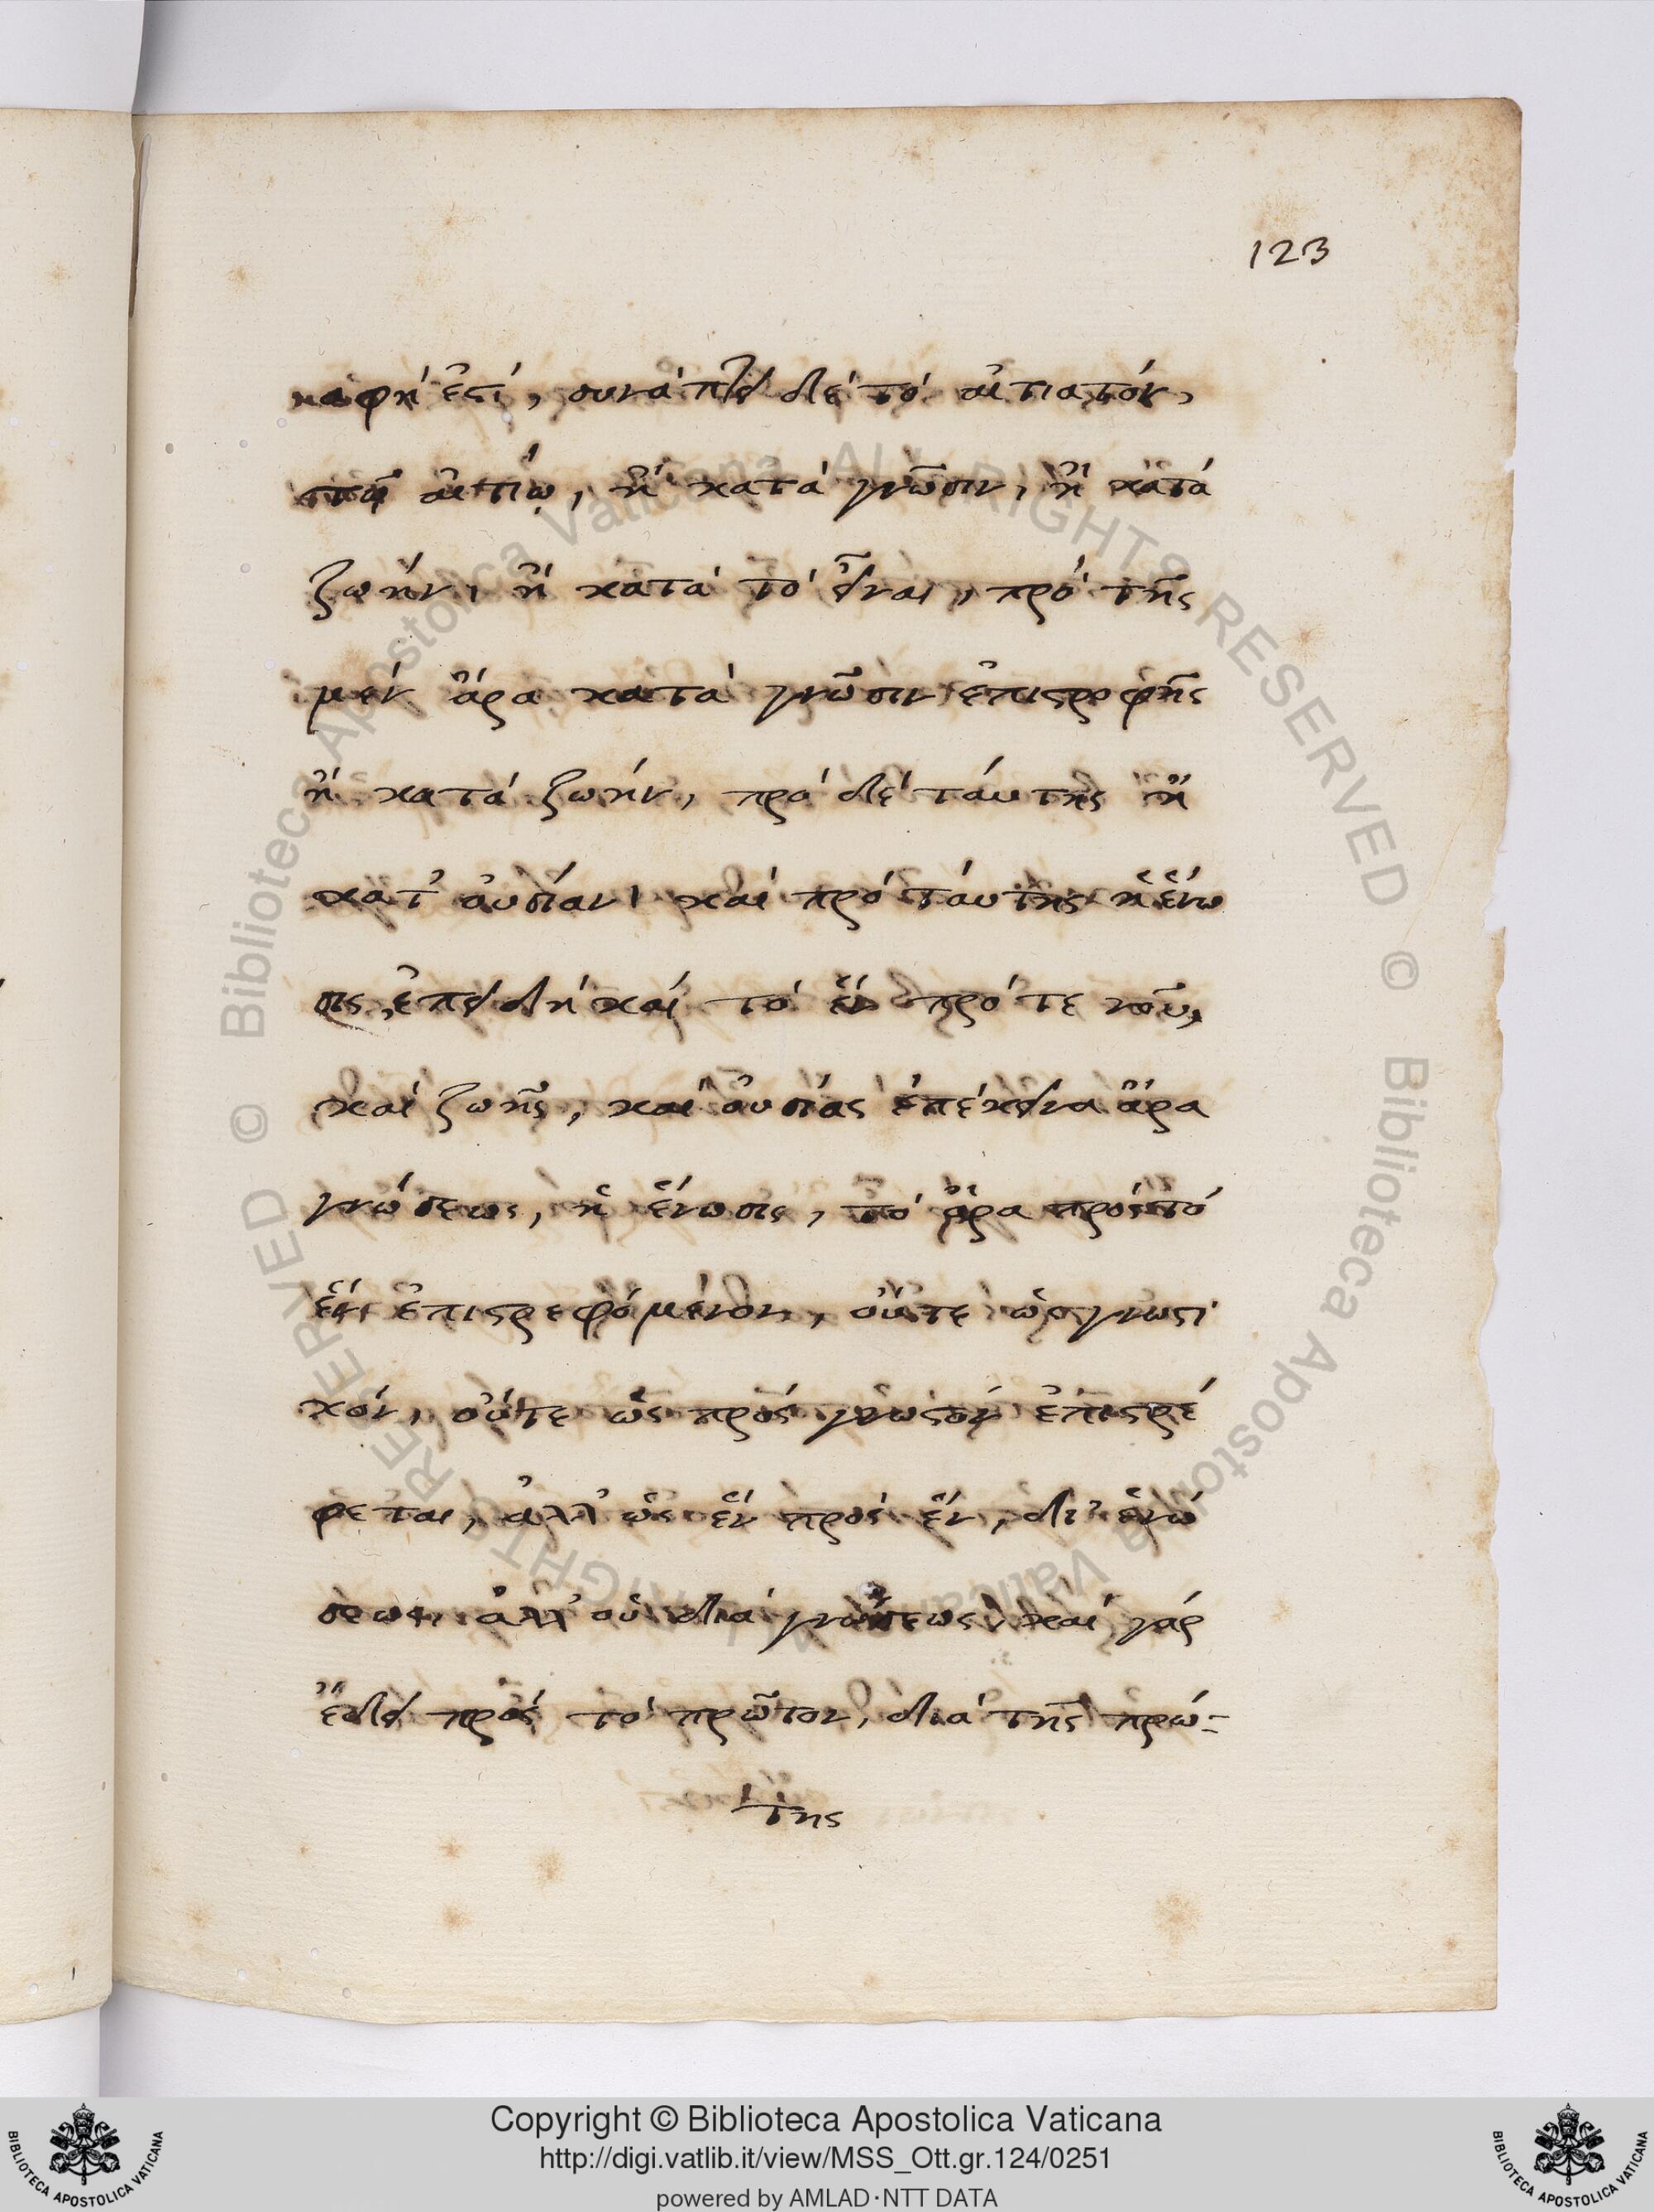 123
ναφή ἐστί, συνάπτει δέ τό αἰτιατόν,
τῷ αἰτίῳ, ἤ κατά γνῶσιν, ἤ κατά
ζωήν, ἤ κατά τό εἶναι, πρό τῆς
μέν ἄρα κατά γνῶσιν ἐπιστροφῆς
ἡ κατά ζωήν, πρό δέ τάυτης ἡ
κατ᾽ ὀυσίαν, καί πρό τάυτης ἡ ἕνω
σις, ἐπειδή καί τό ἕν πρό τε νοῦ,
καί ζωῆς, καί ὀυσίας ἐπέκεινα ἄρα
γνώσεως, ἡ ἕνωσις, τό ἄρα πρός τό
ἕν ἐπιστρεφόμενον, οὔτε ὡς γνωστι
κόν, οὔτε ὡς πρός γνωστόν ἐπιστρέ
φεται, ἀλλ᾽ ὡς ἕν πρός ἕν, δι᾽ ἑνώ
σεως, ἀλλ᾽ οὐ διά γνώσεως, καί γάρ
ἔδει πρός τό πρῶτον, διά τῆς πρώ-
της
Copyright © Biblioteca Apostolica Vaticana
http://digi.vatlib.it/view/MSS_Ott.gr.124/0251
powered by AMLAD·NTT DATA
BIBLIOTECA APOSTOLICA VATICANA
BIBLIOTECA APOSTOLICA VATICANA
© Biblioteca Apostolica Vaticana ALL RIGHTS RESERVED
© Biblioteca Apostolica Vaticana ALL RIGHTS RESERVED